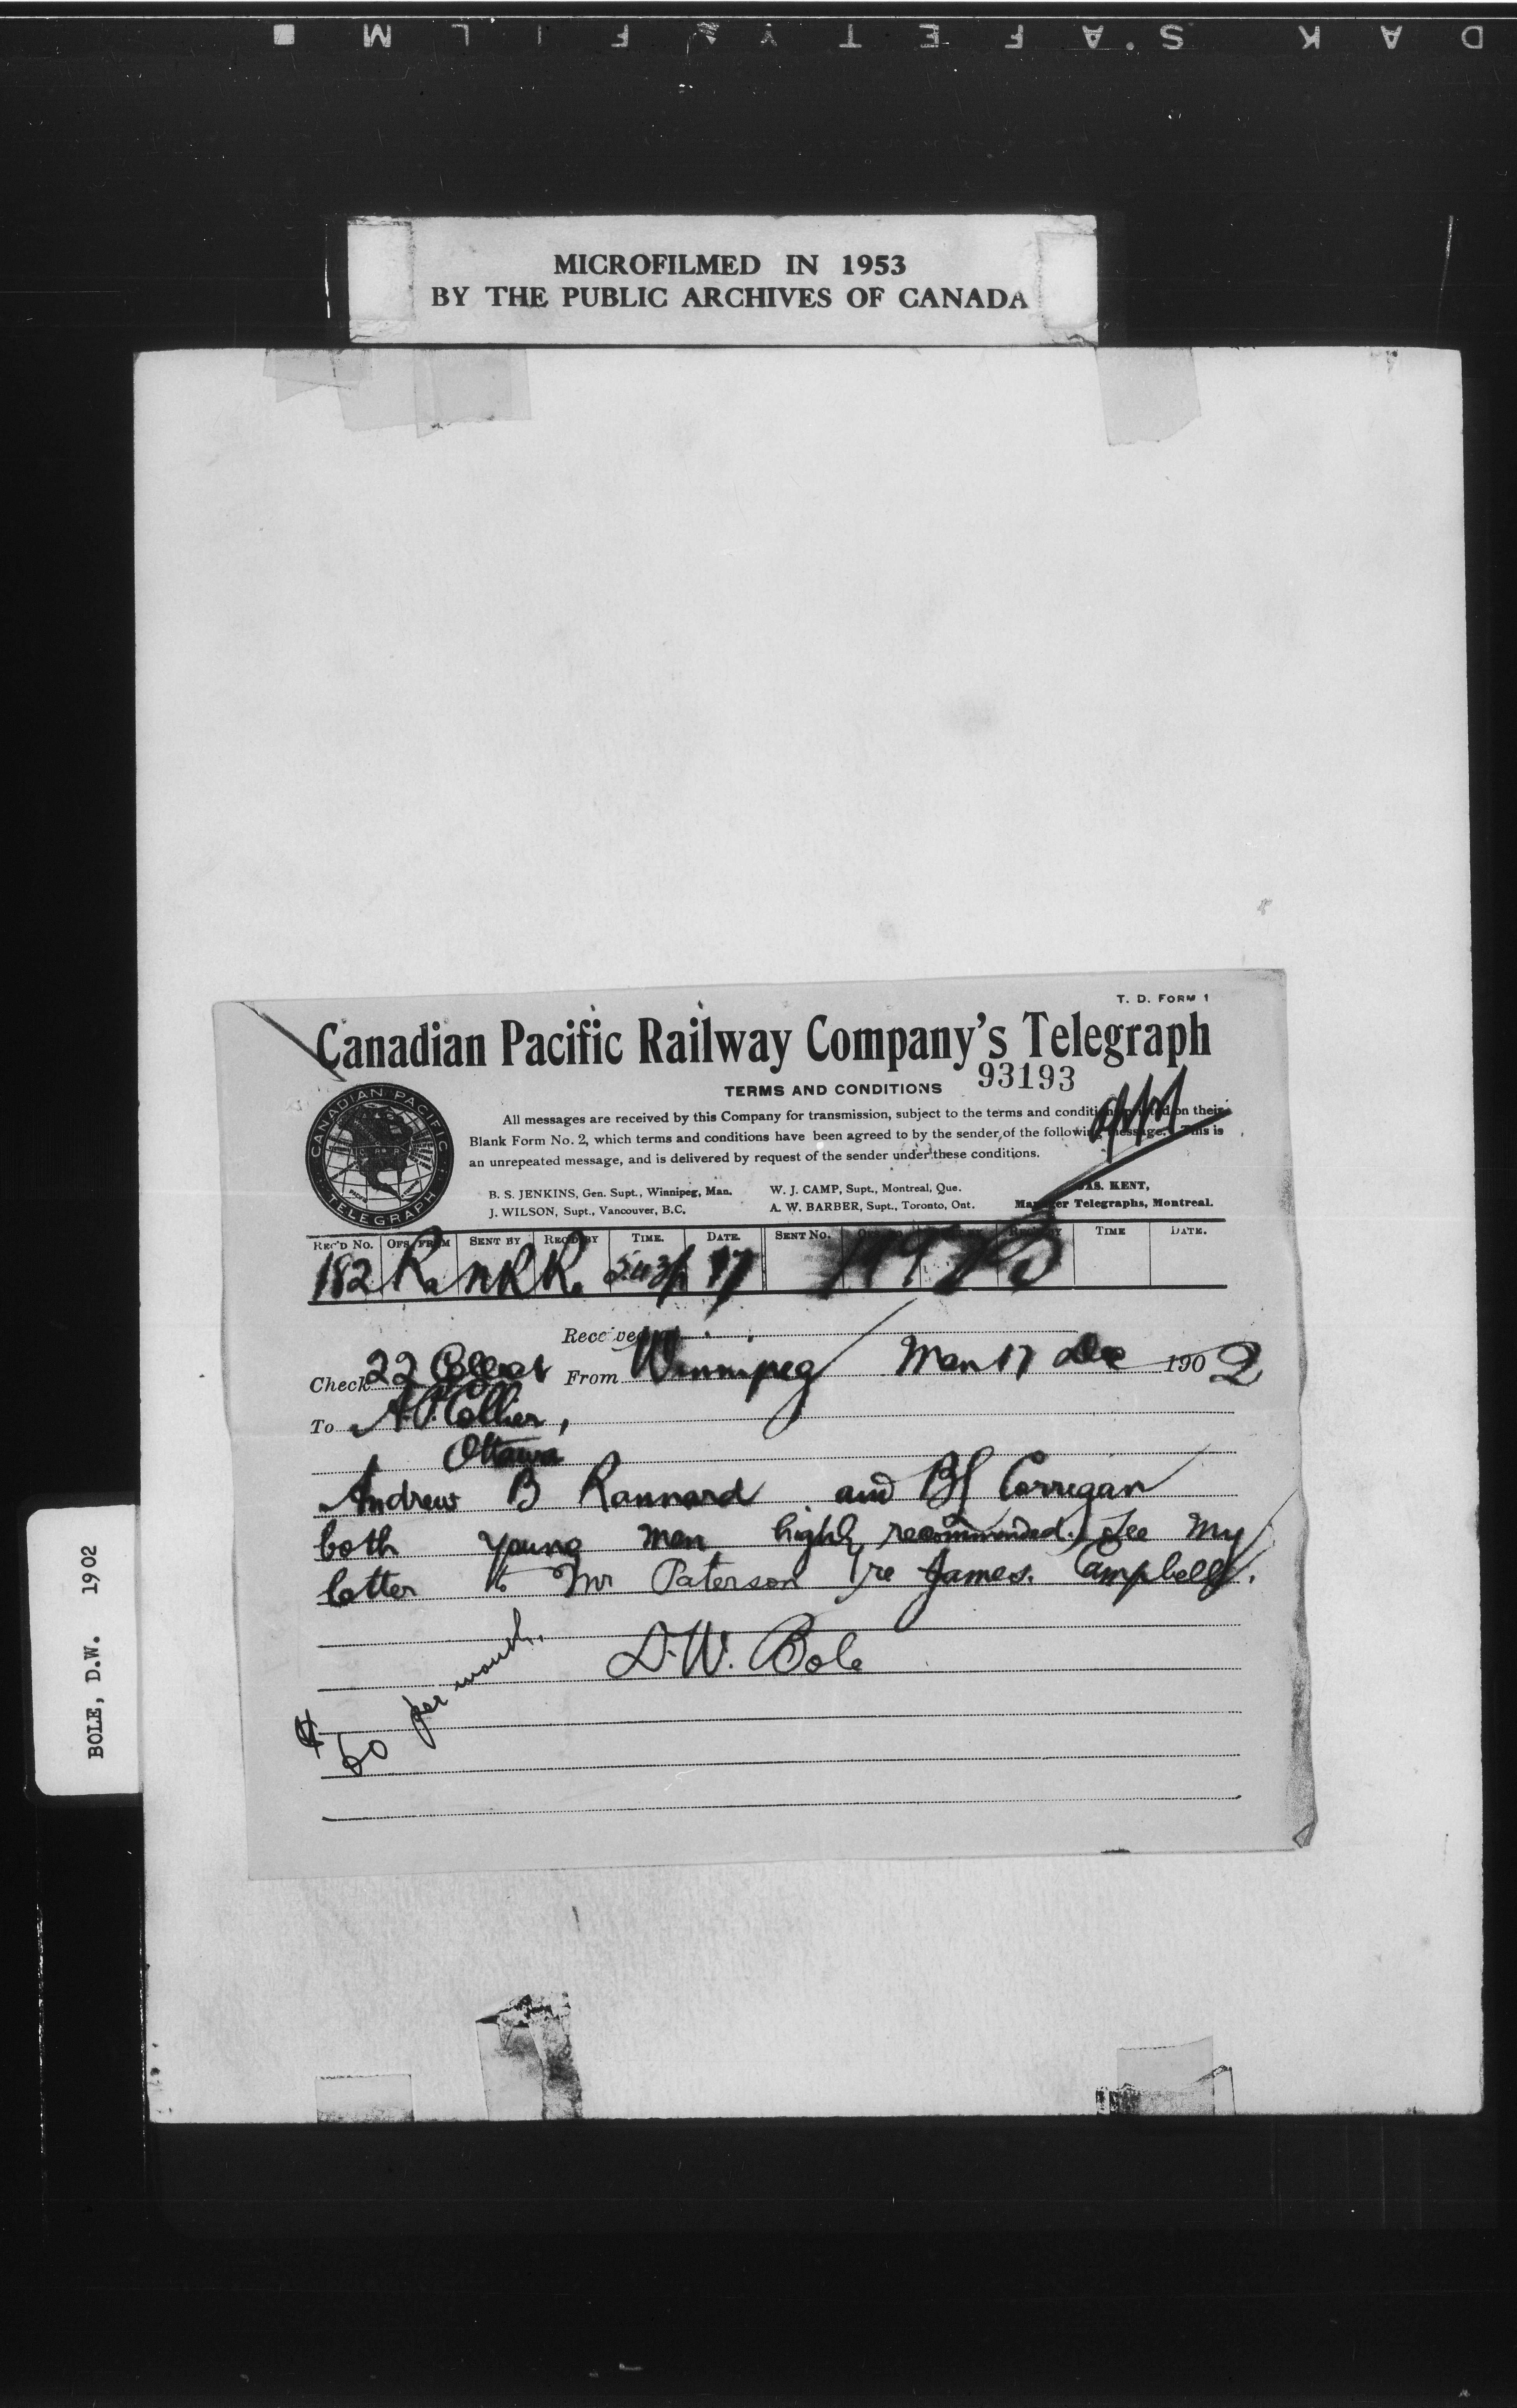 KODAK SAFETY FILM
MICROFILMED IN 1953
BY THE PUBLIC ARCHIVES OF CANADA
T. D. FORM 1
Canadian Pacific Railway Company's Telegraph
TERMS AND CONDITIONS 93193
CANADIAN PACIFIC TELEGRAPH
All messages are received by this Company for transmission, subject to the terms and conditions printed on their
Blank Form No. 2, which terms and conditions have been agreed to by the sender of the following message. This is
an unrepeated message, and is delivered by request of the sender under these conditions.
B. S. JENKINS, Gen. Supt., Winnipeg, Man. W. J. CAMP, Supt., Montreal, Que. JAS. KENT,
J. WILSON, Supt., Vancouver, B.C. A. W. BARBER, Supt., Toronto, Ont. Manager Telegraphs, Montreal.
REC'D No. OFS. FROM SENT BY REC'D BY TIME. DATE. SENT No. REC'D BY TIME DATE.
182 Ra nR R. 5.43p 17
Received
Check 22 Collect From Winnipeg Man 17 Dec 1902
To A.P. Collier,
Ottawa
Andrew B Rannard and BL Corrigan
both young men highly recommended. See my
letter to Mr Paterson re James Campbell.
D.W. Bole
$60 per month.
BOLE, D.W. 1902